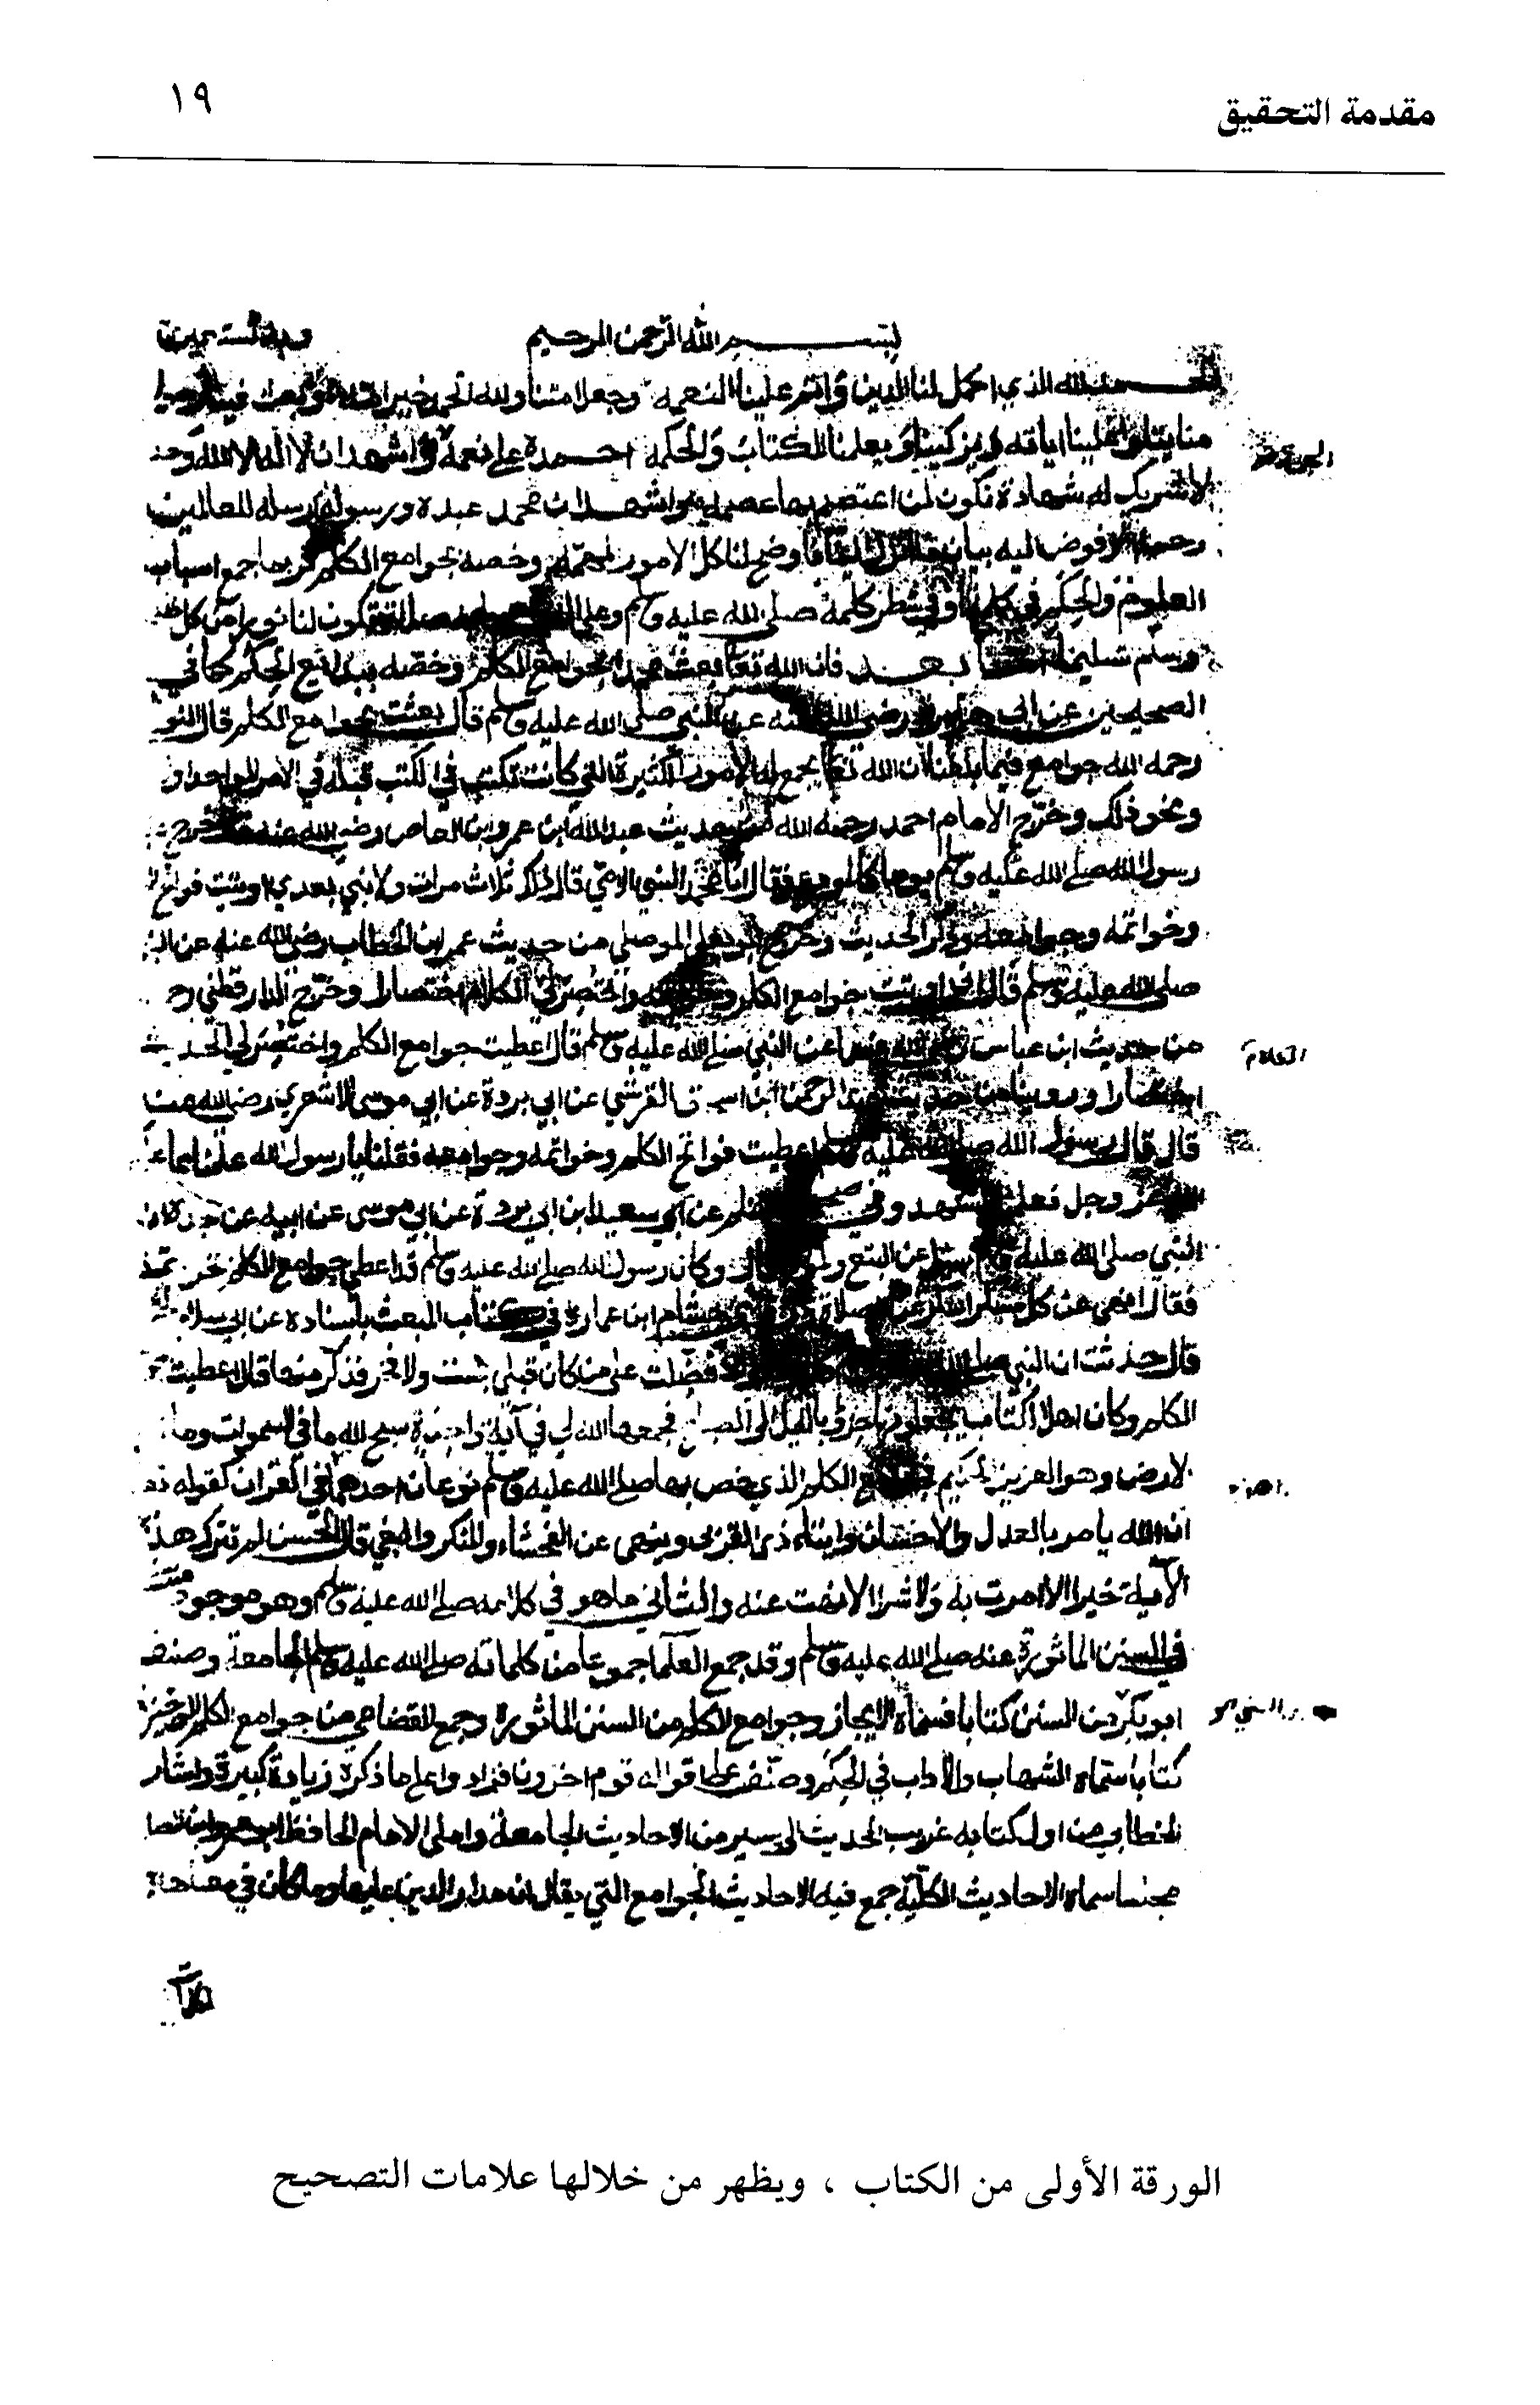 مقدمة التحقيق
١٩
بسم الله الرحمن الرحيم وبه نستعين
الحمد لله الذي اكمل لنا الدين واتم علينا النعمه وجعل امتنا ولله الحمد خير امة وبعث فينا رسولا
منا يتلو علينا اياته ويزكينا ويعلمنا الكتاب والحكمه احمده على نعمه واشهد ان لا اله الا الله وحده
لا شريك له شهادة تكون لمن اعتصم بها عصمه واشهد ان محمد عبده ورسوله ارسله للعالمين
رحمة وفوض اليه بيان فاوضح لنا كل الامور المهمه وخصه بجوامع الكلم فربما جمع اسباب
العلوم والحكم في كلمة او في شطر كلمة صلى الله عليه وسلم وعلى تكون لنا نورا من كل
وسلم تسليما بعد فان الله تعا بعث محمدا بجوامع الكلم وخصه ببدايع الحكم كما في
الصحيحين عن ابي هريرة رضى الله عنه عن النبي صلى الله عليه وسلم قال بعثت بجوامع الكلم قال
رحمه الله جوامع فيما بلغنا ان الله تعا يجمع له الامور الكثيرة التي كانت تكتب في الكتب قبله في الامر الواحد او
ونحو ذلك وخرج الامام احمد رحمه الله من حديث عبد الله ابن عمرو ابن العاص رضي الله عنه خرج
رسول الله صلى الله عليه وسلم يوما كالمودع فقال انا محمد النبي الامي قال ذلك ثلاث مرات ولا نبي بعدي اوتيت فواتح
وخواتمه وجوامعه وذكر الحديث وخرج ابو يعلى الموصلي من حديث عمر ابن الخطاب رضى الله عنه عن
صلى الله عليه وسلم قال اوتيت جوامع الكلم وخواتمه واختصر لي الكلام اختصارا وخرج الدار قطني
من حديث ابن عباس رضي الله عنهما عن النبي صلى الله عليه وسلم قال اعطيت جوامع الكلم واختصر لي الحديث
اختصارا وروينا من حديث عبد الرحمن ابن القرشي عن ابي بردة عن ابي موسى الاشعري رضى الله عنه
قال قال رسول الله صلى الله عليه وسلم اعطيت فواتح الكلم وخواتمه وجوامعه فقلنا يا رسول الله علمنا
عز وجل فعلمنا التشهد وفي صحيح مسلم عن سعيد ابن ابي بردة عن ابي موسى عن ابيه عن جده
النبي صلى الله عليه وسلم سئل عن البتع والمزر قال وكان رسول الله صلى الله عليه وسلم قد اعطي جوامع الكلم
فقال انهى عن كل مسكر اسكر عن الصلاة وروى هشام ابن عمارة في كتاب المبعث باسناده عن ابي سلام
قال حدثت ان النبي فضلت على من كان قبلي بست ولا فخر فذكر منها قال اعطيت
الكلم وكان اهل الكتاب يجعلونها جزؤ بالليل الى الصباح فجمعها الله لي في آية واحدة سبح لله ما في السموات وما
الارض وهو العزيز الحكيم فجوامع الكلم الذي خص بها صلى الله عليه وسلم نوعان احدهما في القران كقوله
ان الله يامر بالعدل والاحسان وايتاء ذي القربى وينهى عن الفحشاء والمنكر والبغي قال الحسن لم تترك هذه
الآية خيرا الا امرت به ولا شرا الا نهت عنه والثاني ما هو في كلامه صلى الله عليه وسلم وهو موجود
في السنن الماثورة عنه صلى الله عليه وسلم وقد جمع العلما جموعا من كلماته صلى الله عليه وسلم الجامعة وصنف
ابو بكر بن السنى كتابا فسماه الايجاز وجوامع الكلم من السنن الماثورة وجمع القضاعي من جوامع الكلم الوجيزة
كتابا سماه الشهاب والاداب في الحكم وصنف على اقواله قوم اخرون فزاد واعلى ما ذكره زيادة كبيرة واشار
الخطابي من اول كتابه غريب الحديث الى يسير من الاحاديث الجامعة واملى الامام الحافظ
مجلسا سماه الاحاديث الكلية جمع فيه الاحاديث الجوامع التي يقال ان مدار الدين عليها وما كان في معناها
الورقة الأولى من الكتاب ، ويظهر من خلالها علامات التصحيح